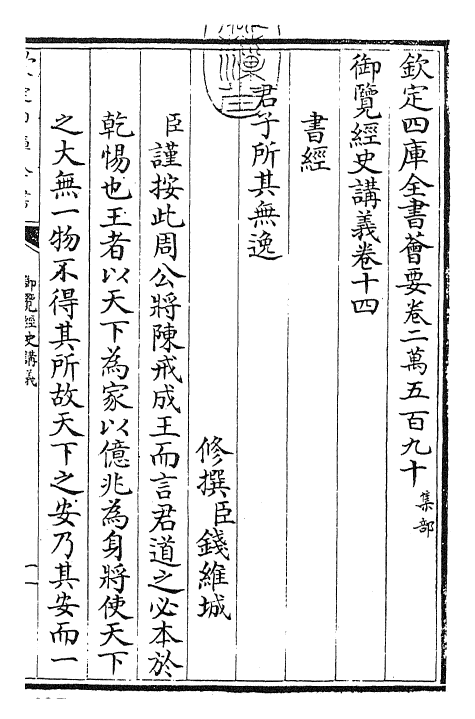 欽定四庫全書薈要卷二萬五百九十集部
御覽經史講義卷十四
書經
君子所其無逸
修撰臣錢維城
臣謹按此周公將陳戒成王而言君道之必本於
乾惕也王者以天下為家以億兆為身將使天下
之大無一物不得其所故天下之安乃其安而一
御覽經史講義
一